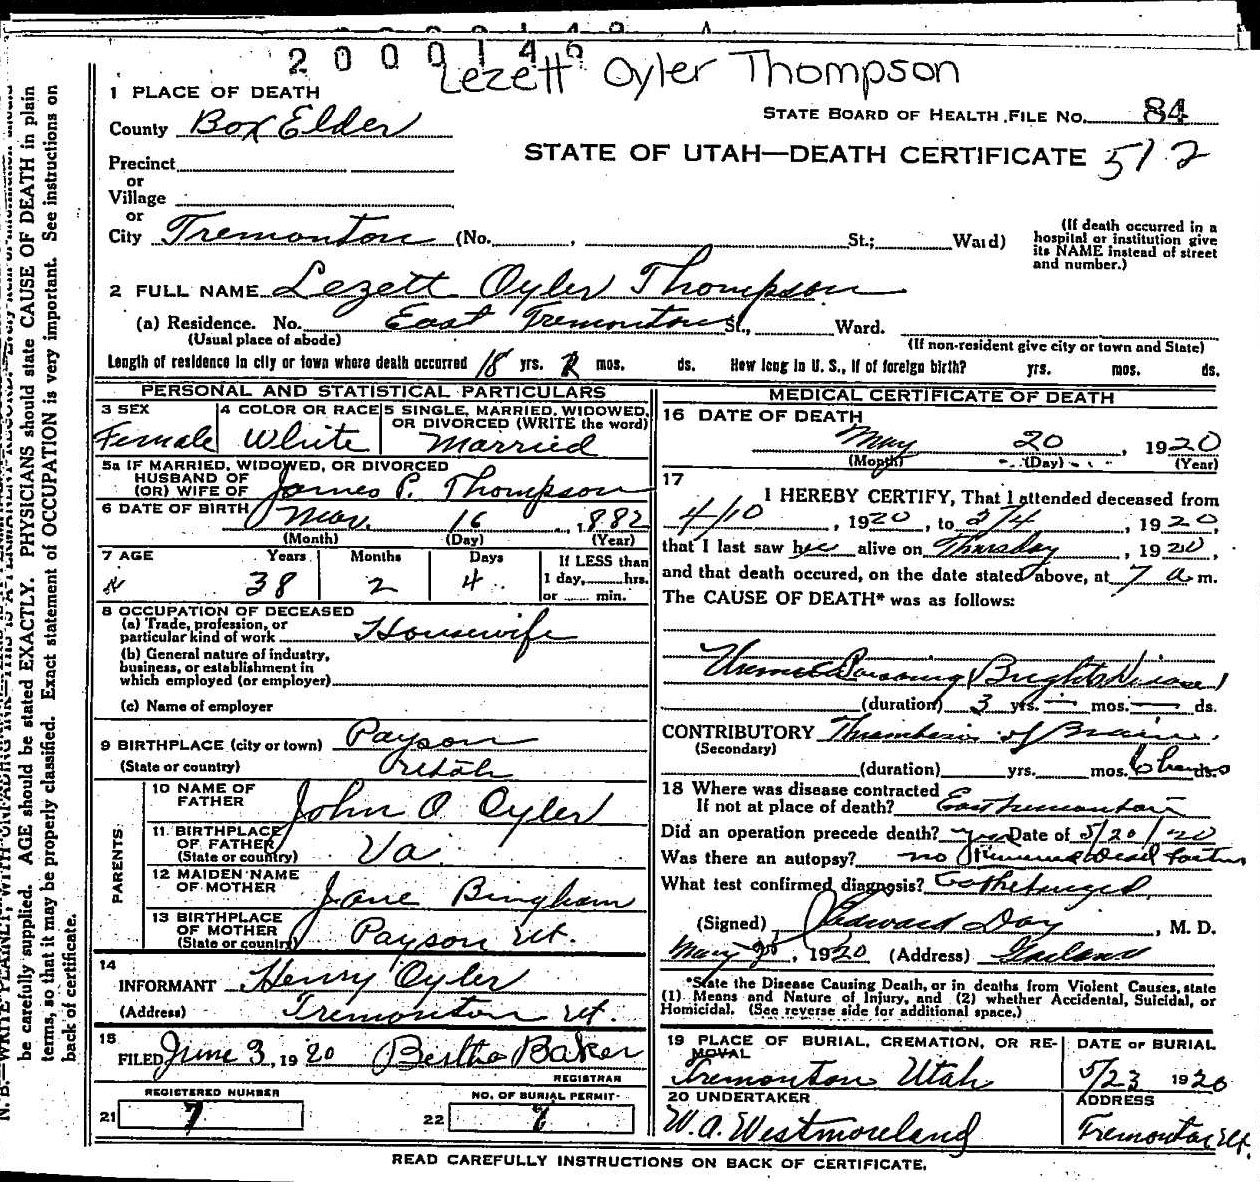 2 0 0 0 1 4 6
Lezett Oyler Thompson
1 PLACE OF DEATH
County Box Elder
STATE BOARD OF HEALTH FILE No. 84
Precinct
or
STATE OF UTAH—DEATH CERTIFICATE 512
Village
or
City Tremonton (No. , St.; Ward)
(If death occurred in a
hospital or institution give
its NAME instead of street
and number.)
2 FULL NAME Lezett Oyler Thompson
(a) Residence. No. East Tremonton St., Ward.
(Usual place of abode)
(If non-resident give city or town and State)
Length of residence in city or town where death occurred 18 yrs. 2 mos. ds. How long in U. S., if of foreign birth? yrs. mos. ds.
PERSONAL AND STATISTICAL PARTICULARS
3 SEX
Female
4 COLOR OR RACE
White
5 SINGLE, MARRIED, WIDOWED,
OR DIVORCED (WRITE the word)
Married
5a IF MARRIED, WIDOWED, OR DIVORCED
HUSBAND OF
(OR) WIFE OF James P. Thompson
6 DATE OF BIRTH Mar. 16, 1882
(Month) (Day) (Year)
7 AGE Years Months Days If LESS than
38 2 4 1 day, hrs.
or min.
8 OCCUPATION OF DECEASED
(a) Trade, profession, or
particular kind of work Housewife
(b) General nature of industry,
business, or establishment in
which employed (or employer)
(c) Name of employer
9 BIRTHPLACE (city or town) Payson
(State or country) Utah
PARENTS
10 NAME OF
FATHER John O Oyler
11 BIRTHPLACE
OF FATHER
(State or country) Va.
12 MAIDEN NAME
OF MOTHER Jane Bingham
13 BIRTHPLACE
OF MOTHER
(State or country) Payson Ut.
14
INFORMANT Henry Oyler
(Address) Tremonton Ut.
15
FILED June 3, 1920 Bertha Baker
REGISTRAR
REGISTERED NUMBER
21 7
NO. OF BURIAL PERMIT
22 6
MEDICAL CERTIFICATE OF DEATH
16 DATE OF DEATH
May 20, 1920
(Month) (Day) (Year)
17
I HEREBY CERTIFY, That I attended deceased from
4/10, 1920, to 1920,
that I last saw her alive on Thursday, 1920,
and that death occured, on the date stated above, at 7 a m.
The CAUSE OF DEATH* was as follows:
Uremic Poisoning (Brights Disease)
(duration) 3 yrs. — mos. — ds.
CONTRIBUTORY Thrombosis of Brain.
(Secondary)
(duration) yrs. mos. 6 hours ds.
18 Where was disease contracted
If not at place of death? East Tremonton
Did an operation precede death? yes Date of 5/20/20
Was there an autopsy? no Removed Dead Foetus
What test confirmed diagnosis?
(Signed) Edward Day, M. D.
May, 1920 (Address) Garland
*State the Disease Causing Death, or in deaths from Violent Causes, state
(1) Means and Nature of Injury, and (2) whether Accidental, Suicidal, or
Homicidal. (See reverse side for additional space.)
19 PLACE OF BURIAL, CREMATION, OR RE-
MOVAL
Tremonton Utah
DATE OF BURIAL
5/23 1920
20 UNDERTAKER
W. A. Westmoreland
ADDRESS
Tremonton Ut.
READ CAREFULLY INSTRUCTIONS ON BACK OF CERTIFICATE.
be carefully supplied. AGE should be stated EXACTLY. PHYSICIANS should state CAUSE OF DEATH in plain
terms, so that it may be properly classified. Exact statement of OCCUPATION is very important. See instructions on
back of certificate.